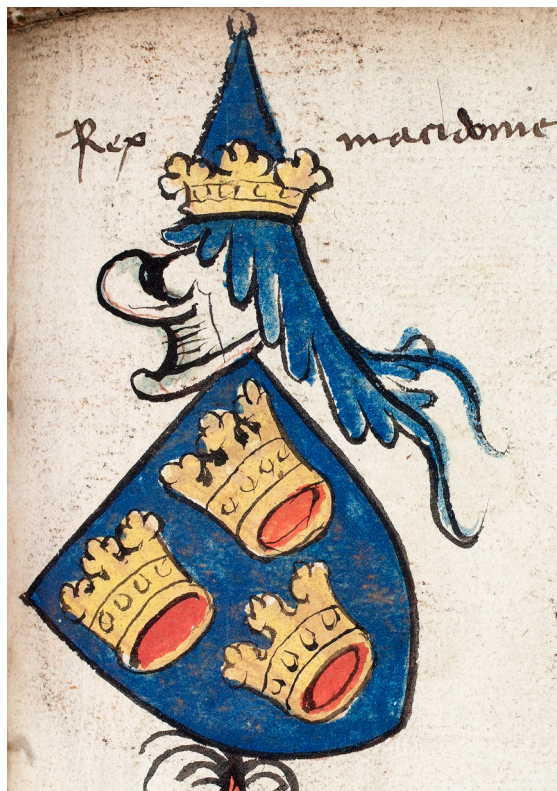 Rex macidonie